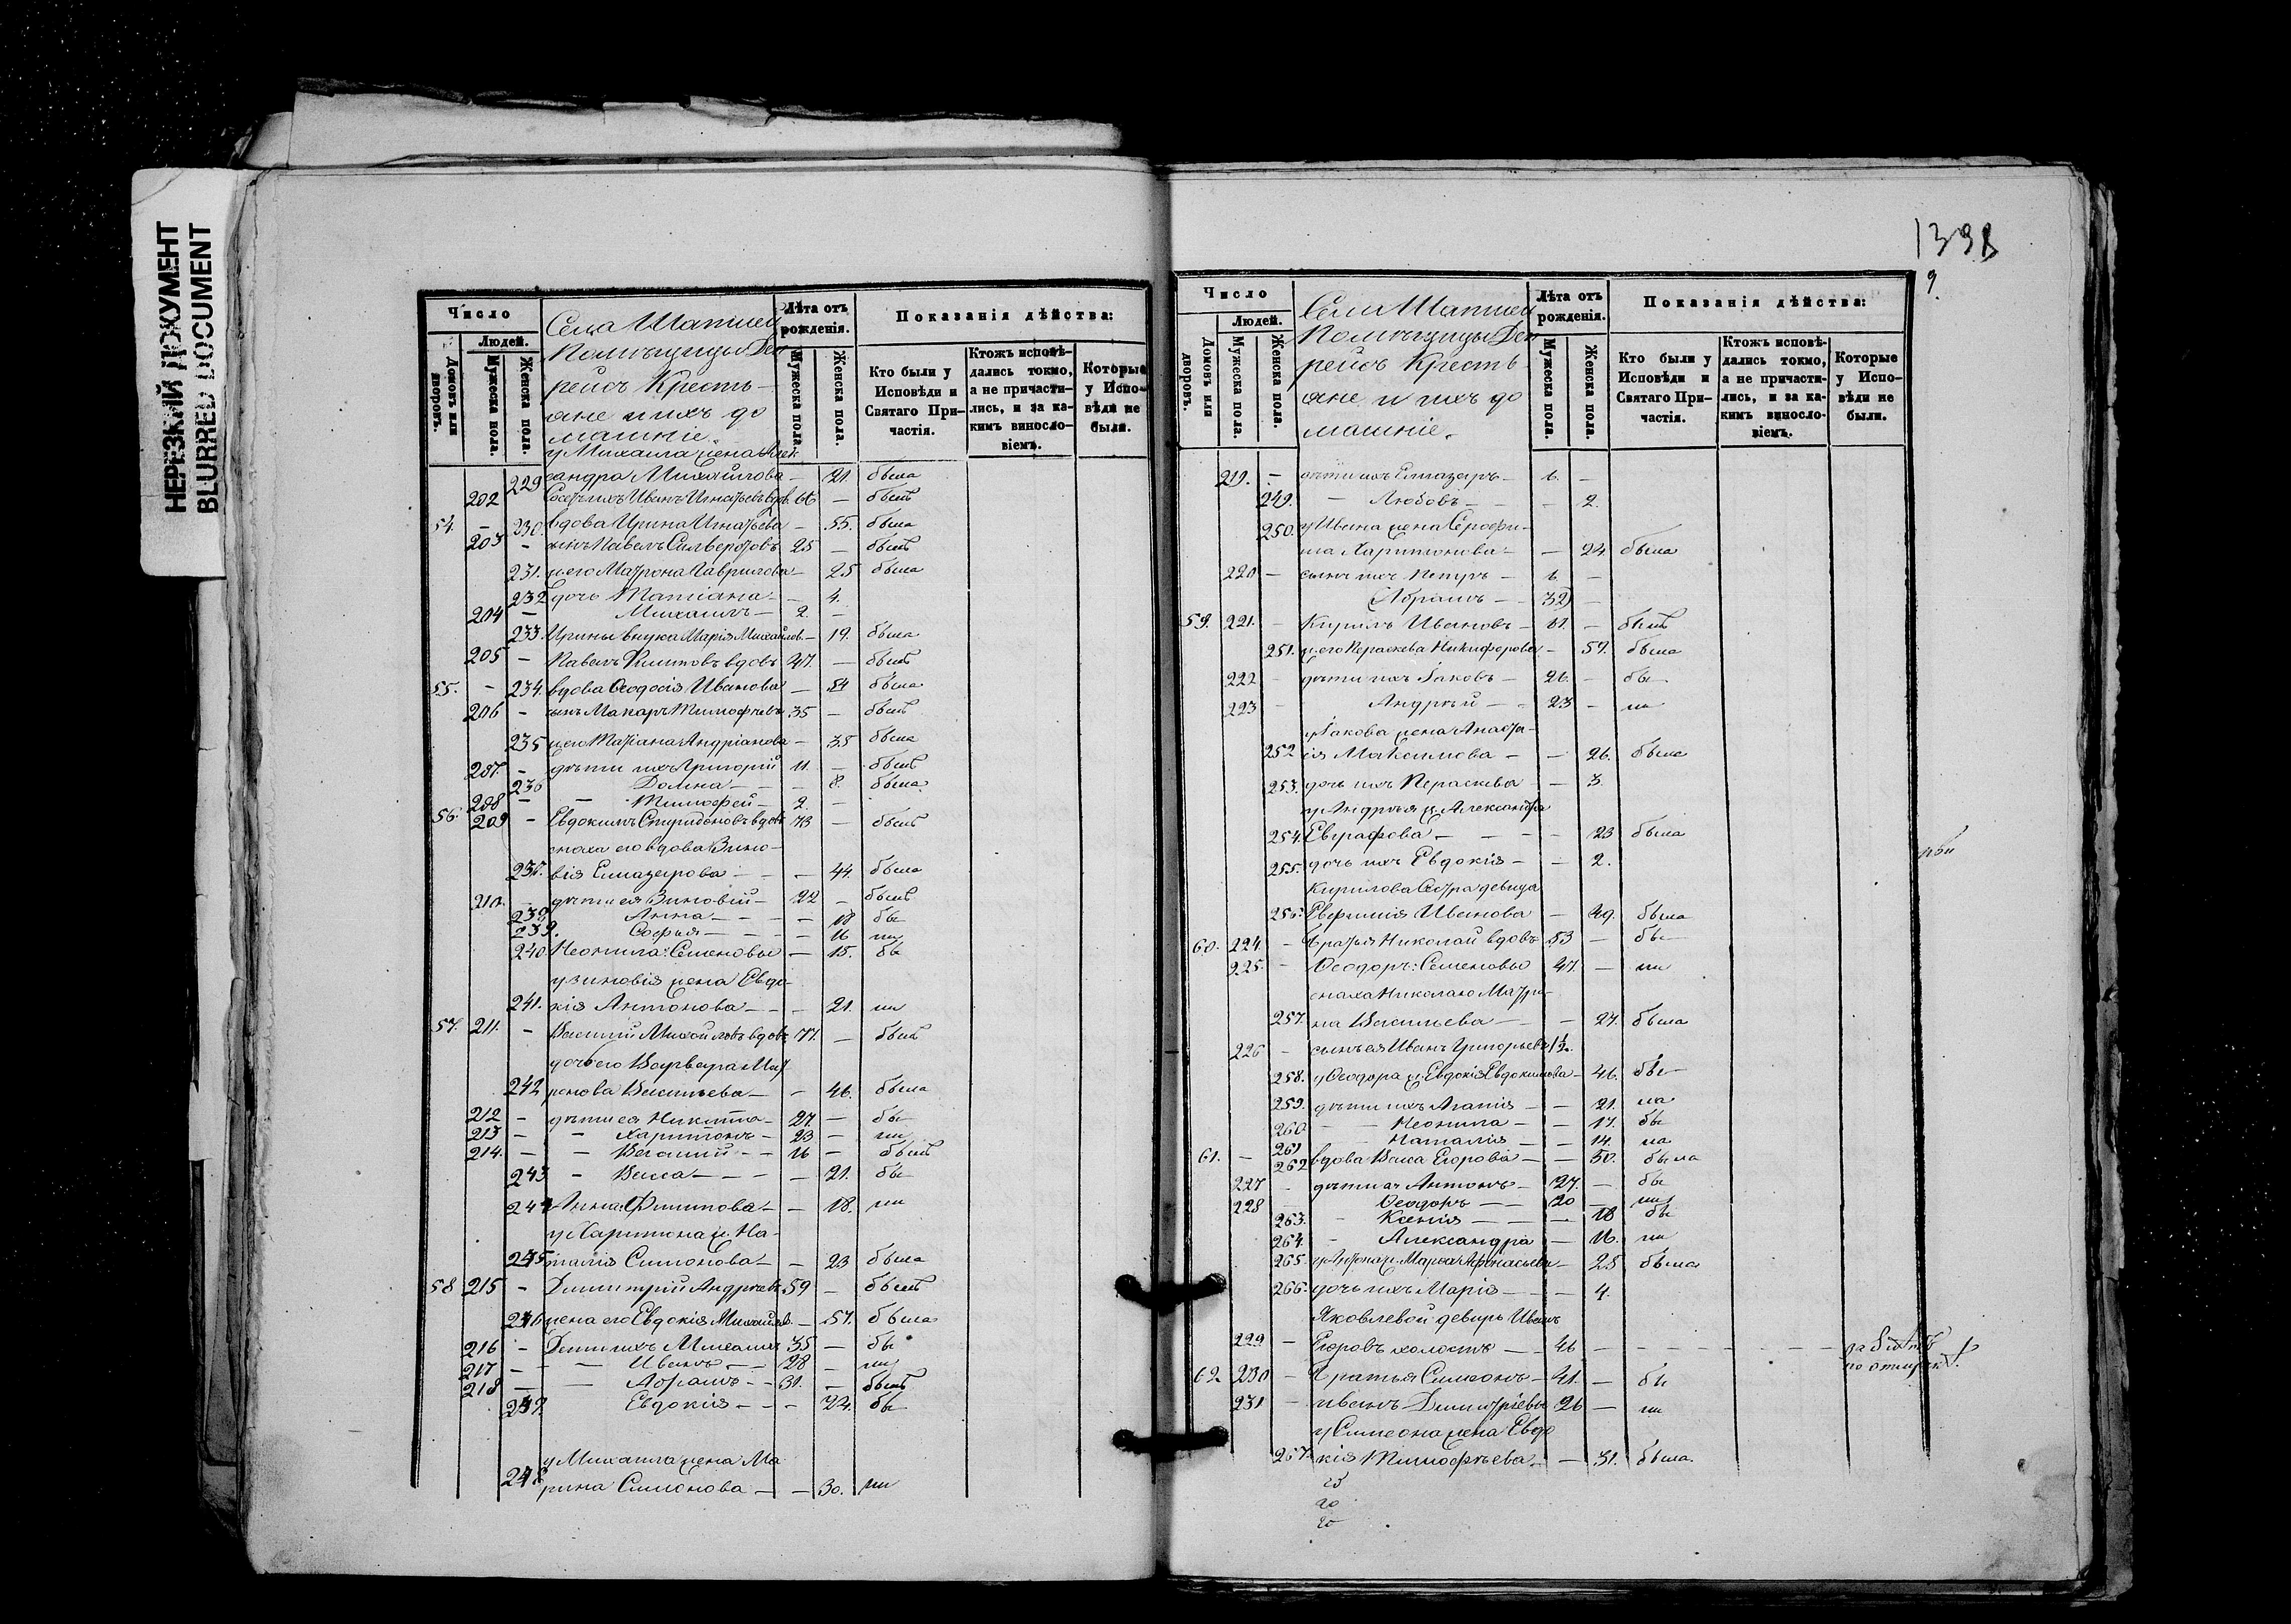 НЕРЕЗКИЙ ДОКУМЕНТ
BLURRED DOCUMENT
Число
Людей.
Домовъ или дворовъ.
Мужеска пола.
Женска пола.
Села
Помѣщицы Деп
рейсъ Кресть-
яне и ихъ до
машніе.
Лѣта отъ рожденія.
Мужеска пола.
Женска пола.
Показанія дѣйства:
Кто были у Исповѣди и Святаго При-частія.
Ктожъ исповѣ-дались токмо, а не причасти-лись, и за ка-кимъ винословіемъ.
Которые у Испо-вѣди не были.
у Михаила жена Алек
229 сандра Михайлова — 21 была
202 Иванъ Игнатьевъ вдов. 66 — былъ
54. — 230. вдова Ирина Игнатьева — 55. была
203 — сынъ Павелъ Силверстовъ 25 — былъ
231. ж его Матрона Гаврилова — 25 была
232 дочь Татіана — 4.
204 — Михаилъ — 2 —
233. Ирины внука Марія Михайлов. — 19. была
205 — Павелъ Филиповъ вдовъ 47. — былъ
55. — 234. вдова Ѳеодосія Иванова — 54 была
206 — сынъ Макаръ Тимофѣевъ 35 — былъ
235 ж его Татіана Андріанова — 35 была
207. — дѣти ихъ Григорій 11. — былъ
236 Домна — — 8. была
208 — — Тимофей — 2. —
56. 209 — Евдокимъ Спиридоновъ вдовъ 73 — былъ
снаха его вдова Зино-
237. вія Елиазарова — — 44. была
210. — дѣти ея Зиновій — 22 — былъ
238 Анна — — — 18 бы
239. Софья — — — 16 ли
240. Неонила: Семеновы — 15. бы
у Зиновія жена Евдо-
241. кія Антонова — — 21. ли
57. 211. — Василий Михайловъ вдовъ 77. — былъ
дочь его Варвара Ми
242 ронова Васильева — — 46. была
212 — дѣти ея Никита — 27. — бы
213 — — Харитонъ — 23 — ли
214. — — Василий — — 16 — былъ
243 — Васса — — — 21. бы
244 Анна: Филипова — — 18. ли
у Харитона ж. На-
245 талія Симонова — — 23 была
58 215 — Димитрій Андреевъ 59 — былъ
246 жена его Евдокія Михайлов. — 57. была
216 — Дети ихъ Михаилъ 35 — бы
217 — — Иванъ — — 28 — ли
218 — — Абрамъ — — 31. — былъ
247. Евдокія — — — 24. бы
у Михаила жена Ма
248 рина Симонова — — 30. ли
139
9.
Число
Людей.
Домовъ или дворовъ.
Мужеска пола.
Женска пола.
Села
Помѣщицы Деп
рейсъ Кресть
яне и ихъ до
машніе.
Лѣта отъ рожденія.
Мужеска пола.
Женска пола.
Показанія дѣйства:
Кто были у Исповѣди и Святаго При-частія.
Ктожъ исповѣ-дались токмо, а не причасти-лись, и за ка-кимъ винословіемъ.
Которые у Испо-вѣди не были.
219. — дѣти ихъ Елиазаръ — 6. —
249. — Любовь — — 2.
250. у Ивана жена Серафи-
ма Харитонова — — 24. была
220 — сынъ ихъ Петръ — 1. —
Абрамъ — 32) —
59. 221. — Кирилъ Ивановъ — 61. — былъ
251. ж его Пераскева Никифорова — 59. была
222 — дѣти ихъ Іаковъ — 26. — бы
223 — Андрей — — 23 — ли
у Іакова жена Анаста-
252 сія Максимова — — 26. была
253. дочь ихъ Пераскева — 3.
у Андрея ж. Александра
254. Евграфова — — — — 23 была
255. дочь ихъ Евдокія — — 2.
Кирилова сестра девица
256. Евфимия Иванова — 49. была
60. 224 — Братья Николай вдовъ 53 — бы
225. — Ѳеодоръ: Семеновы 47. — ли
снаха Николаю Матро-
257. на Васильева — — 27. была
226 — сынъ ея Иванъ Григорьевъ 1½.
258. у Ѳеодора ж. Евдокія Евдокимова — 46. бы
259. дѣти ихъ Агапія — — 21. ла
260 — — Неонила — — 17. бы
261 — Наталія — — 14. ла
61. — 262 вдова Васса Егорова — — 50. была
227 — дѣти ея Антонъ — 27. — бы
228 Ѳеодоръ — — 20 — ли
263. — Ксенія — — — 18 бы
264 — Александра — 16. ли
265. у Антона ж. Марѳа Афонасьева — 25 была
266. дочь ихъ Марія — — 4.
Яковлевой деверь Иванъ
229 — Егоровъ холостъ — — 46 —
62 230 — Братья Симеонъ — 41. — бы
231 — Иванъ Димитріевы 26 — ли
у Симеона жена Евдо
267. кія Тимофѣева — — 31. была.